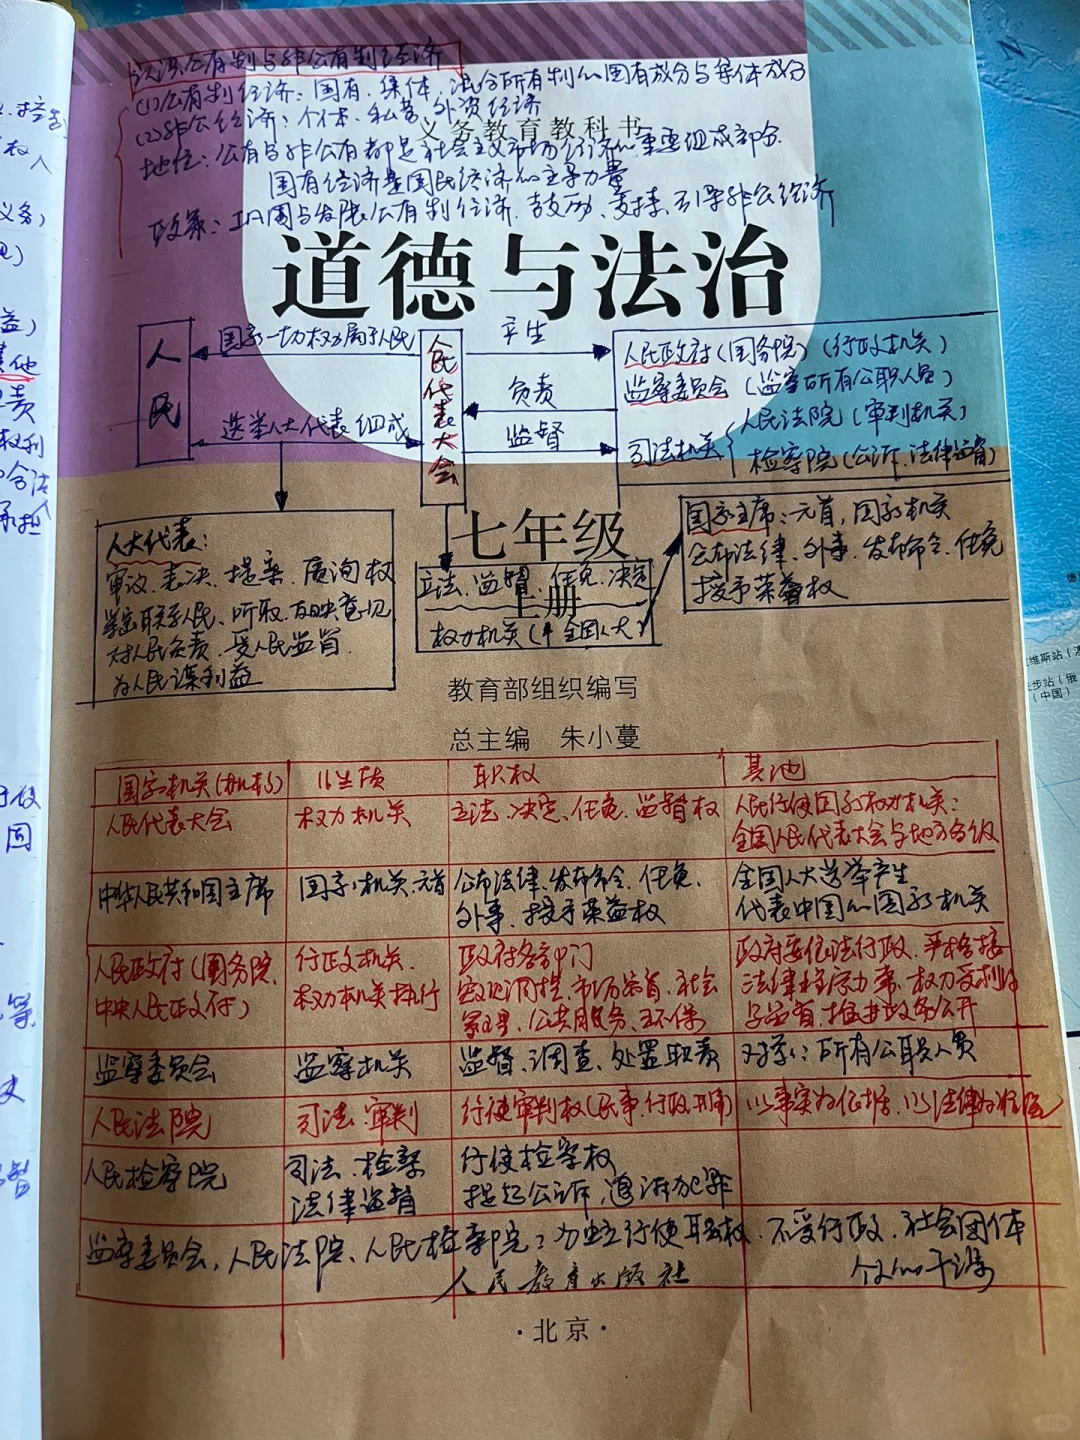 认识公有制与非公有制经济
(1)公有制经济:国有、集体、混合所有制的国有成分与集体成分
(2)非公经济:个体、私营、外资经济
义务教育教科书
地位:公有与非公有都是社会主义市场经济的重要组成部分.
国有经济是国民经济的主导力量
政策:巩固与发展公有制经济、鼓励、支持、引导非公经济
道德与法治
人民
国家一切权力属于人民
选举人大代表组成
人民代表大会
产生
负责
监督
人民政府(国务院)(行政机关)
监察委员会(监察所有公职人员)
司法机关
人民法院(审判机关)
检察院(公诉、法律监督)
七年级
上册
国家主席:元首,国家机关
公布法律、外事、发布命令、任免
授予荣誉权
人大代表:
审议、表决、提案、质询权
联系人民、听取、反映意见
对人民负责、受人民监督
为人民谋利益
立法、监督、任免、决定
权力机关(全国人大)
教育部组织编写
总主编 朱小蔓
国家机关(机构) 性质 职权 其他
人民代表大会 权力机关 立法、决定、任免、监督权 人民行使国家权力机关:
全国人民代表大会与地方各级
中华人民共和国主席 国家机关、元首 公布法律、发布命令、任免、
外事、授予荣益权
全国人大选举产生
代表中国的国家机关
人民政府(国务院、
中央人民政府)
行政机关、
权力机关执行
政府各部门
宏观调控、市场监管、社会
管理、公共服务、环保
政府要依法行政、严格按
法律程序办事、权力受制
监督、推进政务公开
监察委员会 监察机关 监督、调查、处置职责 对象:所有公职人员
人民法院 司法、审判 行使审判权(民事、行政、刑事) 以事实为依据、以法律为准绳
人民检察院 司法、检察
法律监督
行使检察权
提起公诉、追诉犯罪
监察委员会,人民法院、人民检察院:独立行使职权、不受行政、社会团体
个人的干涉
人民教育出版社
·北京·